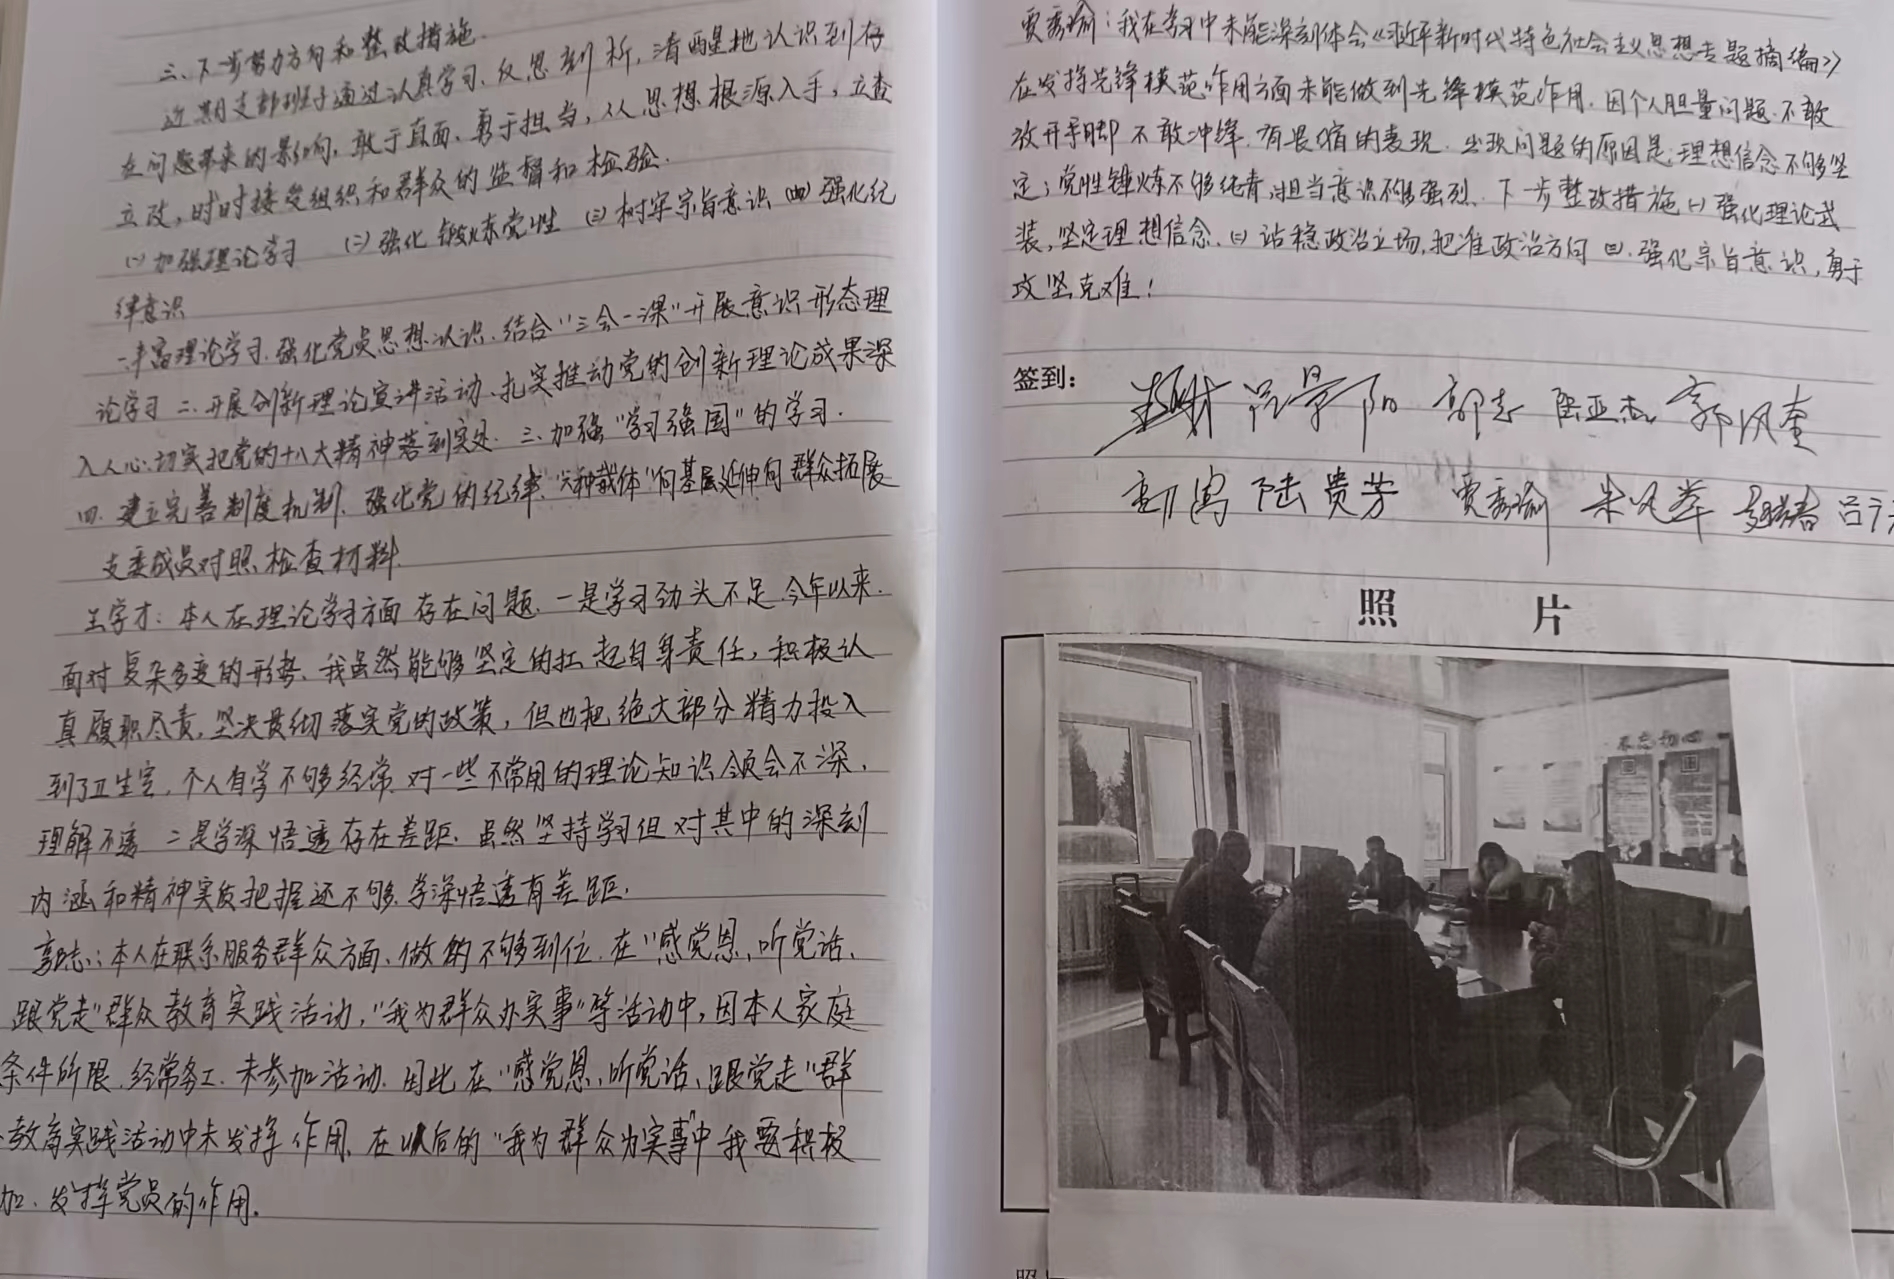 三、下一步努力方向和整改措施.
近期支部班子通过认真学习、反思剖析,清醒地认识到存
在问题带来的影响,敢于直面、勇于担当,从思想根源入手,立查
立改,时时接受组织和群众的监督和检验.
(一)加强理论学习 (二)强化锻炼党性 (三)树牢宗旨意识 (四)强化纪
律意识
一.丰富理论学习.强化党员思想认识.结合"三会一课"开展意识形态理
论学习 二.开展创新理论宣讲活动、扎实推动党的创新理论成果深
入人心.切实把党的十八大精神落到实处.三.加强"学习强国"的学习.
四.建立完善制度机制.强化党的纪律."六种载体"向基层延伸向群众拓展
支委成员对照检查材料.
王学才:本人在理论学习方面存在问题.一是学习劲头不足.今年以来.
面对复杂多变的形势、我虽然能够坚定的扛起自身责任,积极认
真履职尽责,坚决贯彻落实党的政策,但也把绝大部分精力投入
到了卫生室,个人自学不够经常.对一些不常用的理论知识领会不深,
理解不透 二是学深悟透存在差距.虽然坚持学习但对其中的深刻
内涵和精神实质把握还不够.学深悟透有差距.
郭志:本人在联系服务群众方面、做的不够到位.在"感党恩、听党话、
跟党走"群众教育实践活动,"我为群众办实事"等活动中,因本人家庭
条件所限.经常务工.未参加活动.因此在"感党恩、听党话、跟党走"群
教育实践活动中未发挥作用.在以后的"我为群众为实事"中我要积极
加.发挥党员的作用.
贾秀瑜:我在学习中未能深刻体会《习近平新时代特色社会主义思想专题摘编》
在发挥先锋模范作用方面未能做到先锋模范作用.因个人胆量问题.不敢
放开手脚 不敢冲锋.有畏缩的表现.出现问题的原因是:理想信念不够坚
定;党性锤炼不够纯青,担当意识不够强烈.下一步整改措施(一)强化理论武
装,坚定理想信念.(二)站稳政治立场,把准政治方向(三).强化宗旨意识,勇于
攻坚克难!
签到:
吕景阳 郭志 郭风奎
陆贵芳 贾秀瑜 朱风举
照 片
不忘初心